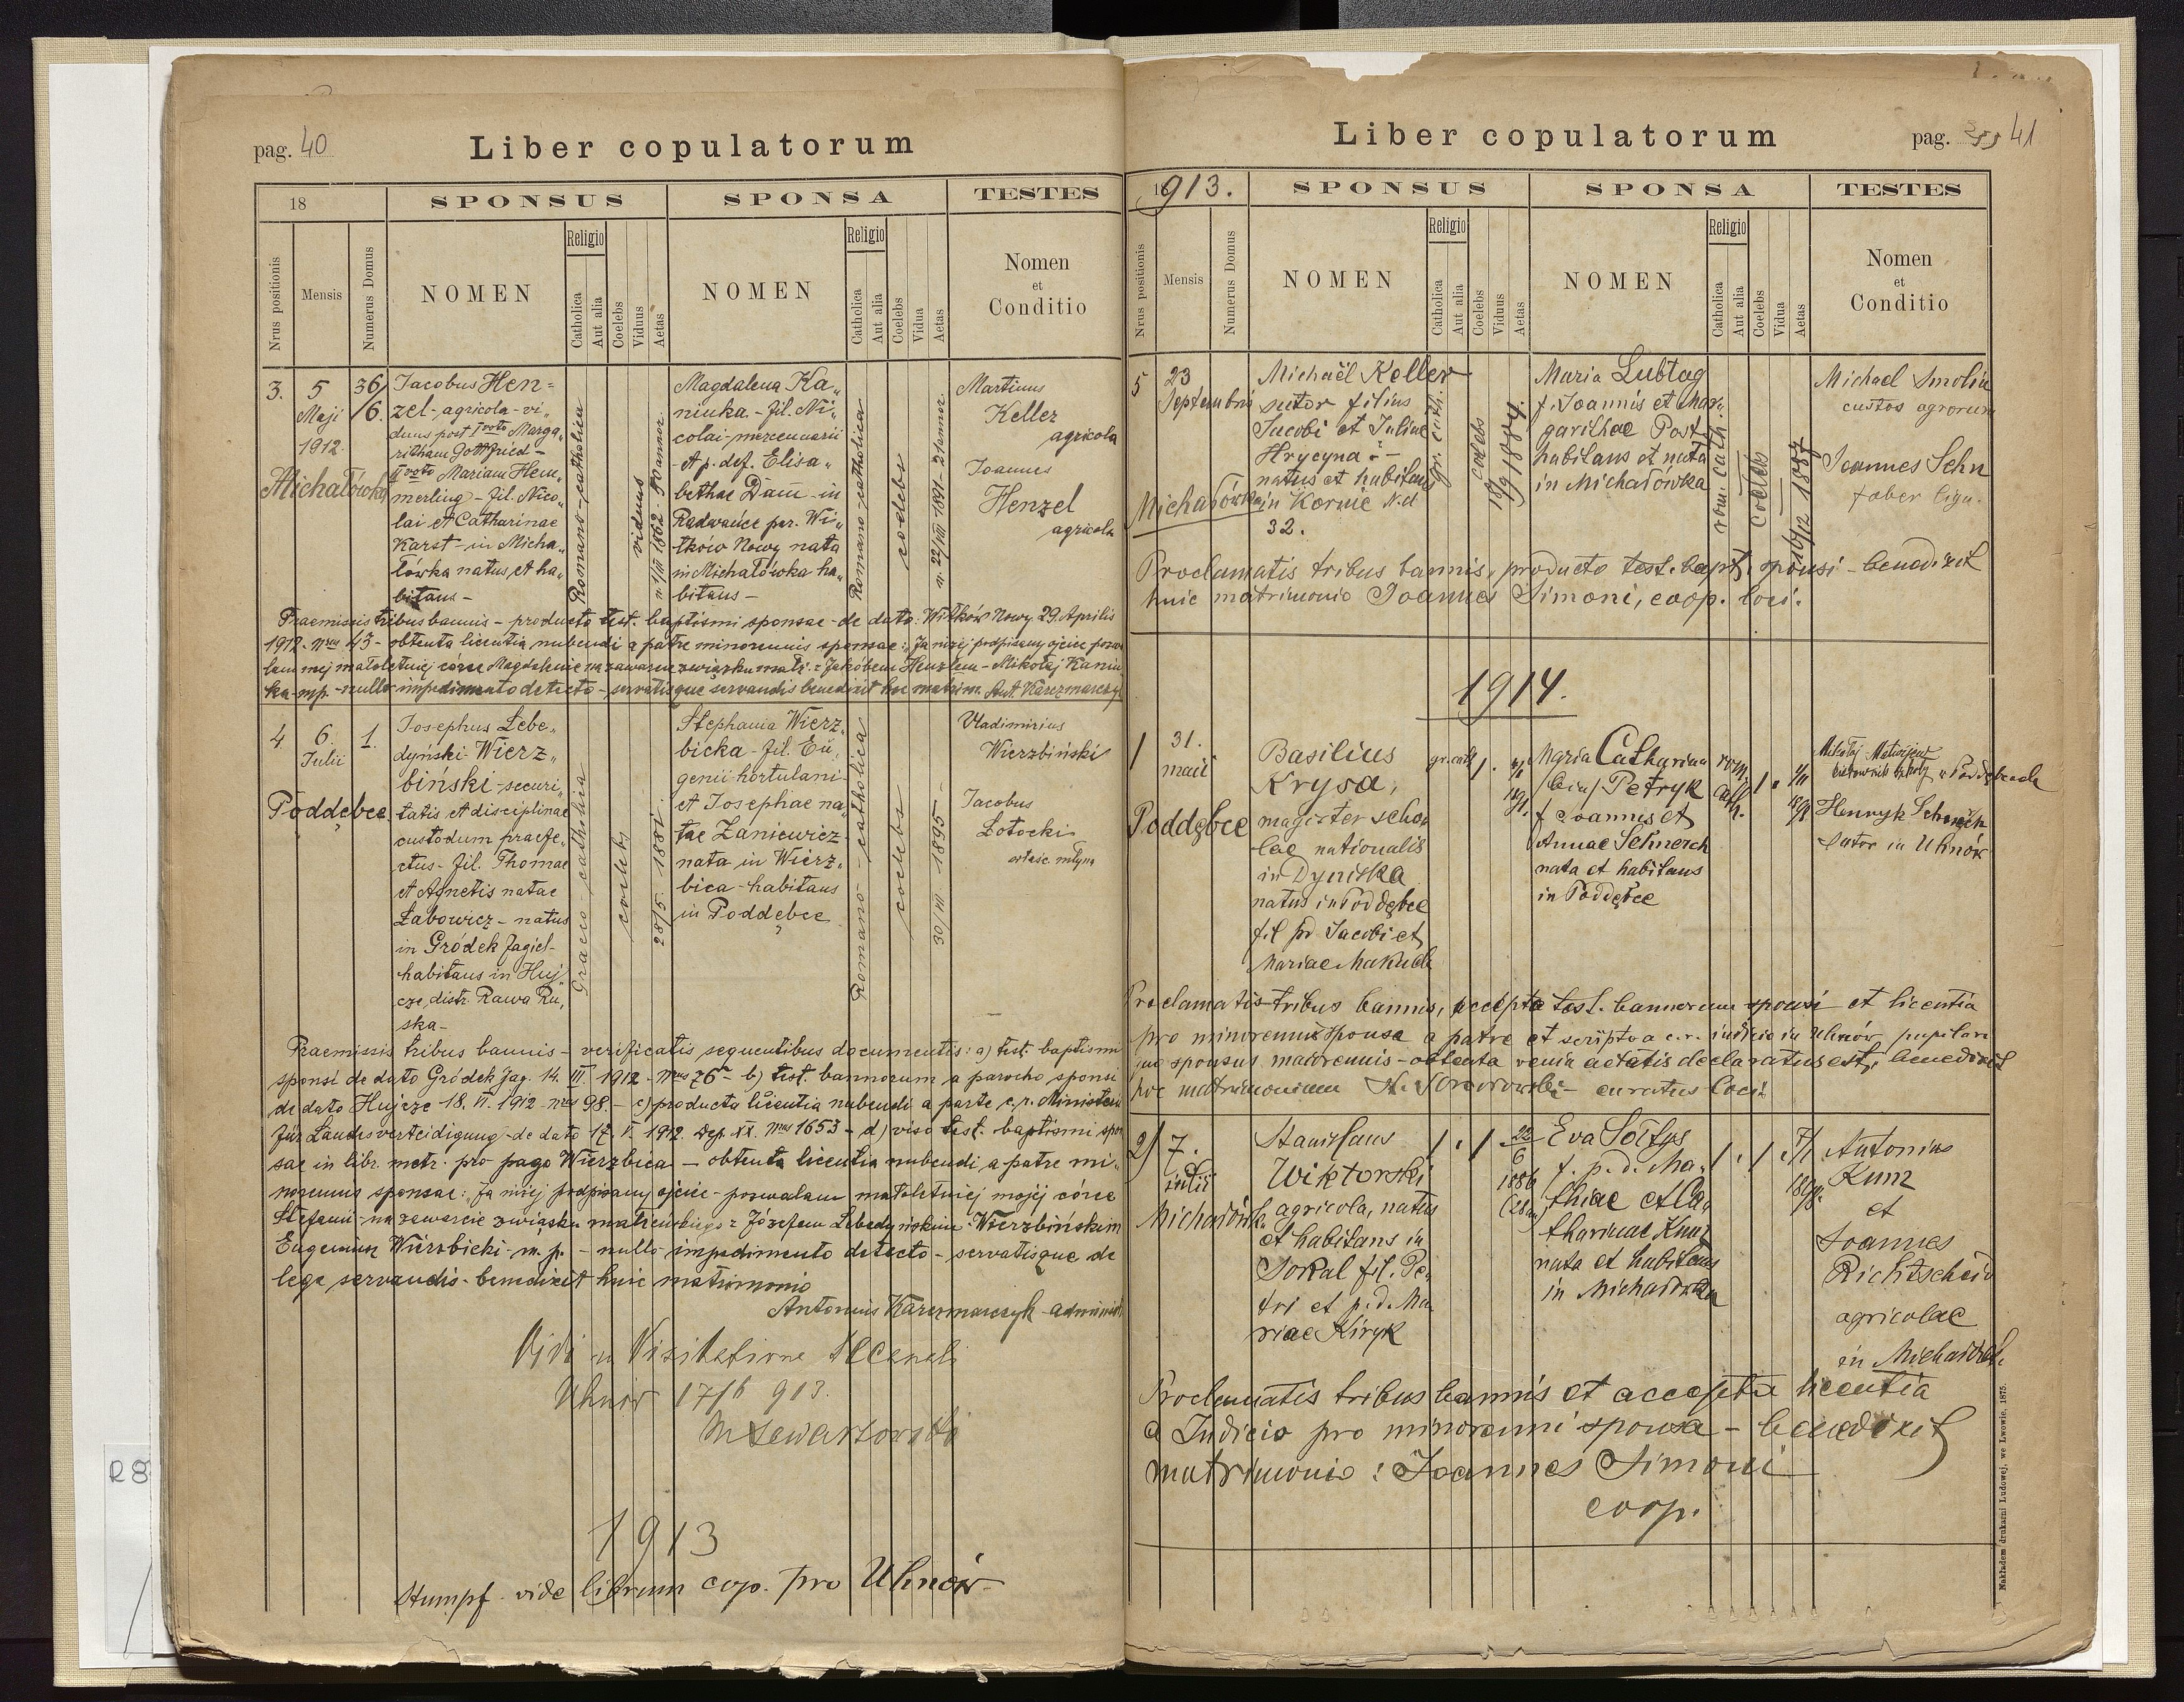 pag. 40
Liber copulatorum
18
SPONSUS
SPONSA
TESTES
Nrus positionis
Mensis
Numerus Domus
NOMEN
Religio
Catholica
Aut alia
Coelebs
Viduus
Aetas
NOMEN
Religio
Catholica
Aut alia
Coelebs
Vidua
Aetas
Nomen
et
Conditio
3.
5
Maji
1912.
Michałówka
36/
6.
Jacobus Hen=
zel - agricola - vi„
duus post I voto Marga„
ritham Gottfried -
II voto Mariam Hem„
merling - fil. Nico„
lai et Catharinae
Karst - in Micha„
łówka natus et ha„
bitans -
Romano-catholica
viduus
n. 1/III 1862 - 50 annor.
Magdalena Ka„
niuka - fil. Ni„
colai - mercenarii
et p. def. Elisa„
bethae Dam - in
Radwańce par. Wi„
tków Nowy nata
in Michałówka ha„
bitans -
Romano-catholica
coelebs
n. 22/III 1891 - 21 annor.
Martinus
Keller
agricola
Joannes
Henzel
agricola
Praemissis tribus bannis - producto test. baptismi sponsae - de dato: Witków Nowy 29. Aprilis
1912. Nrus 43 - obtenta licentia nubendi a patre minorennis sponsae: „Ja niżej podpisany ojciec pozwa
lam mej małoletniej córce Magdalenie na zawarcie związku małż. z Jakóbem Henzlem - Mikołaj Kaniu
ka mp. - nullo impedimento detecto - servatisque servandis benedixit hoc matrim. Ant. Karczmarczyk
4.
6.
Julii
Poddębce
1.
Josephus Łebe„
dyński-Wierz„
biński - securi„
tatis et disciplinae
custodum praefe„
ctus - fil. Thomae
et Agnetis natae
Łabowicz - natus
in Gródek Jagiel-
habitans in Huj„
cze, distr. Rawa Ru„
ska -
Graeco-catholica
coelebs
28/5 1881.
Stephania Wierz„
bicka - fil. Eu„
genii hortulani -
et Josephae na„
tae Zaniewicz -
nata in Wierz„
bica - habitans
in Poddębce
Romano-catholica
coelebs
30/III 1895 -
Vladimirius
Wierzbiński
Jacobus
Łotocki
właśc. młyna
Praemissis tribus bannis - verificatis sequentibus documentis: a) test. baptismi
sponsi de dato Gródek Jag. 14. III. 1912 - Nrus 76 - b) test. bannorum a parocho sponsi
de dato Hujcze 18. VI. 1912 - nrus 98. - c) producta licentia nubendi a parte c. r. Ministerii
für Landesverteidigung - de dato 17. V. 1912. Dep. XX. Nrus 1653 - d) viso test. baptismi spon
sae in libr. metr. pro pago Wierzbica - obtenta licentia nubendi a patre mi„
norennis sponsae: Ja niżej podpisany ojciec - pozwalam małoletniej mojej córce
Stefanii - na zawarcie związku małżeńskiego z Józefem Łebedyńskim-Wierzbińskim
Eugeniusz Wierzbicki - m. p. - nullo impedimento detecto - servatisque de
lege servandis - benedixit huic matrimonio
Antonius Karczmarczyk - administ.
Vidi in Visitatione Decanali
Uhnów 17/6 913.
1913
Stumpf - vide librum cop. pro Uhnów -
Liber copulatorum
pag. 41
1913.
SPONSUS
SPONSA
TESTES
Nrus positionis
Mensis
Numerus Domus
NOMEN
Religio
Catholica
Aut alia
Coelebs
Viduus
Aetas
NOMEN
Religio
Catholica
Aut alia
Coelebs
Vidua
Aetas
Nomen
et
Conditio
5
23
Septembris
Michałówka
Michaël Keller
sutor filius
Jacobi et Julinae
Hrycyna -
natus et habitans
in Kornie N.d
32.
gr. cath.
coelebs
18/9 1884.
Maria Lubtag
f. Joannis et Mar„
garithae Post
habitans et nata
in Michałówka
rom. cath.
coelebs
16/12 1887
Michael Smolin
custos agrorum
Joannes Sehn
faber lign.
Proclamatis tribus bannis, producto test. bapt. sponsi - benedixit
huic matrimonio Joannes Simoni, coop. loci.
1914.
1
31.
maii
Poddębce
Basilius
Krysa,
magister scho
lae nationalis
in Dyniska
natus in Poddębce
fil pd Jacobi et
Mariae Makuch
gr. cath
1.
1/1
1891.
Maria Catharina
/bin/ Petryk
f. Joannis et
Annae Schnerch
nata et habitans
in Poddębce
rom.
cath.
1.
Mikołaj Matwijew
kierownik szkoły w Poddębcach
Henryk Schnerch
sutor in Uhnów
Proclamatis tribus bannis, accepto test. bannorum sponsi et licentia
pro minorenni sponsa a patre et scripto a c.r. iudicio in Uhnów pupilari
quo sponsus maiorennis - obtenta venia aetatis declaratus est, benedixit
hoc matrimonium curatus loci.
2)
7.
julii
Michałówka
Stanislaus
Wiktorski
agricola, natus
et habitans in
Sokal fil. Pe„
tri et p. d. Ma„
riae Kiryk
1.
1
22
6
1886
(28 a)
Eva Sołtys
f. p. d. Ma„
thiae et Ca„
tharinae Kunz
nata et habitans
in Michałówka
1.
1.
Antonius
Kunz
et
Joannes
Richtscheid
agricolae
in Michałówk.
Proclamatis tribus bannis et accepta licentia
a Judicio pro minorenni sponsa - benedixit
matrimonio: Joannes Simoni
coop.
Nakładem drukarni Ludowej, we Lwowie, 1875.
R 8